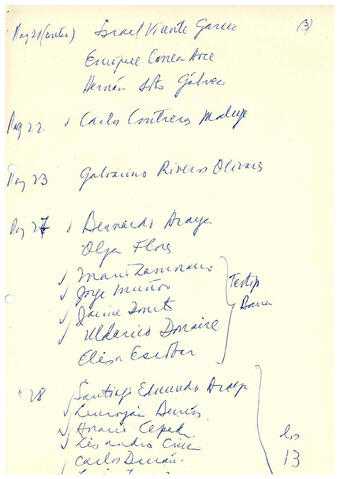 (3)
Pag 21 (antes) Israel Vicente García
Enrique Correa Arce
Hernán Soto Gálvez
Pag 22. Carlos Contreras Maluje
Pag 23 Galvarino Riveros Olivares
Pag 27 Bernardo Araya
Olga Flores
Mario Zamorano
Jorge Muñoz
Jaime Donato
Uldarico Donaire
Elisa Escobar
" 28 Santiago Edmundo Araya
Horacio Cepeda
Lisandro Cruz
Carlos Durán
los
13